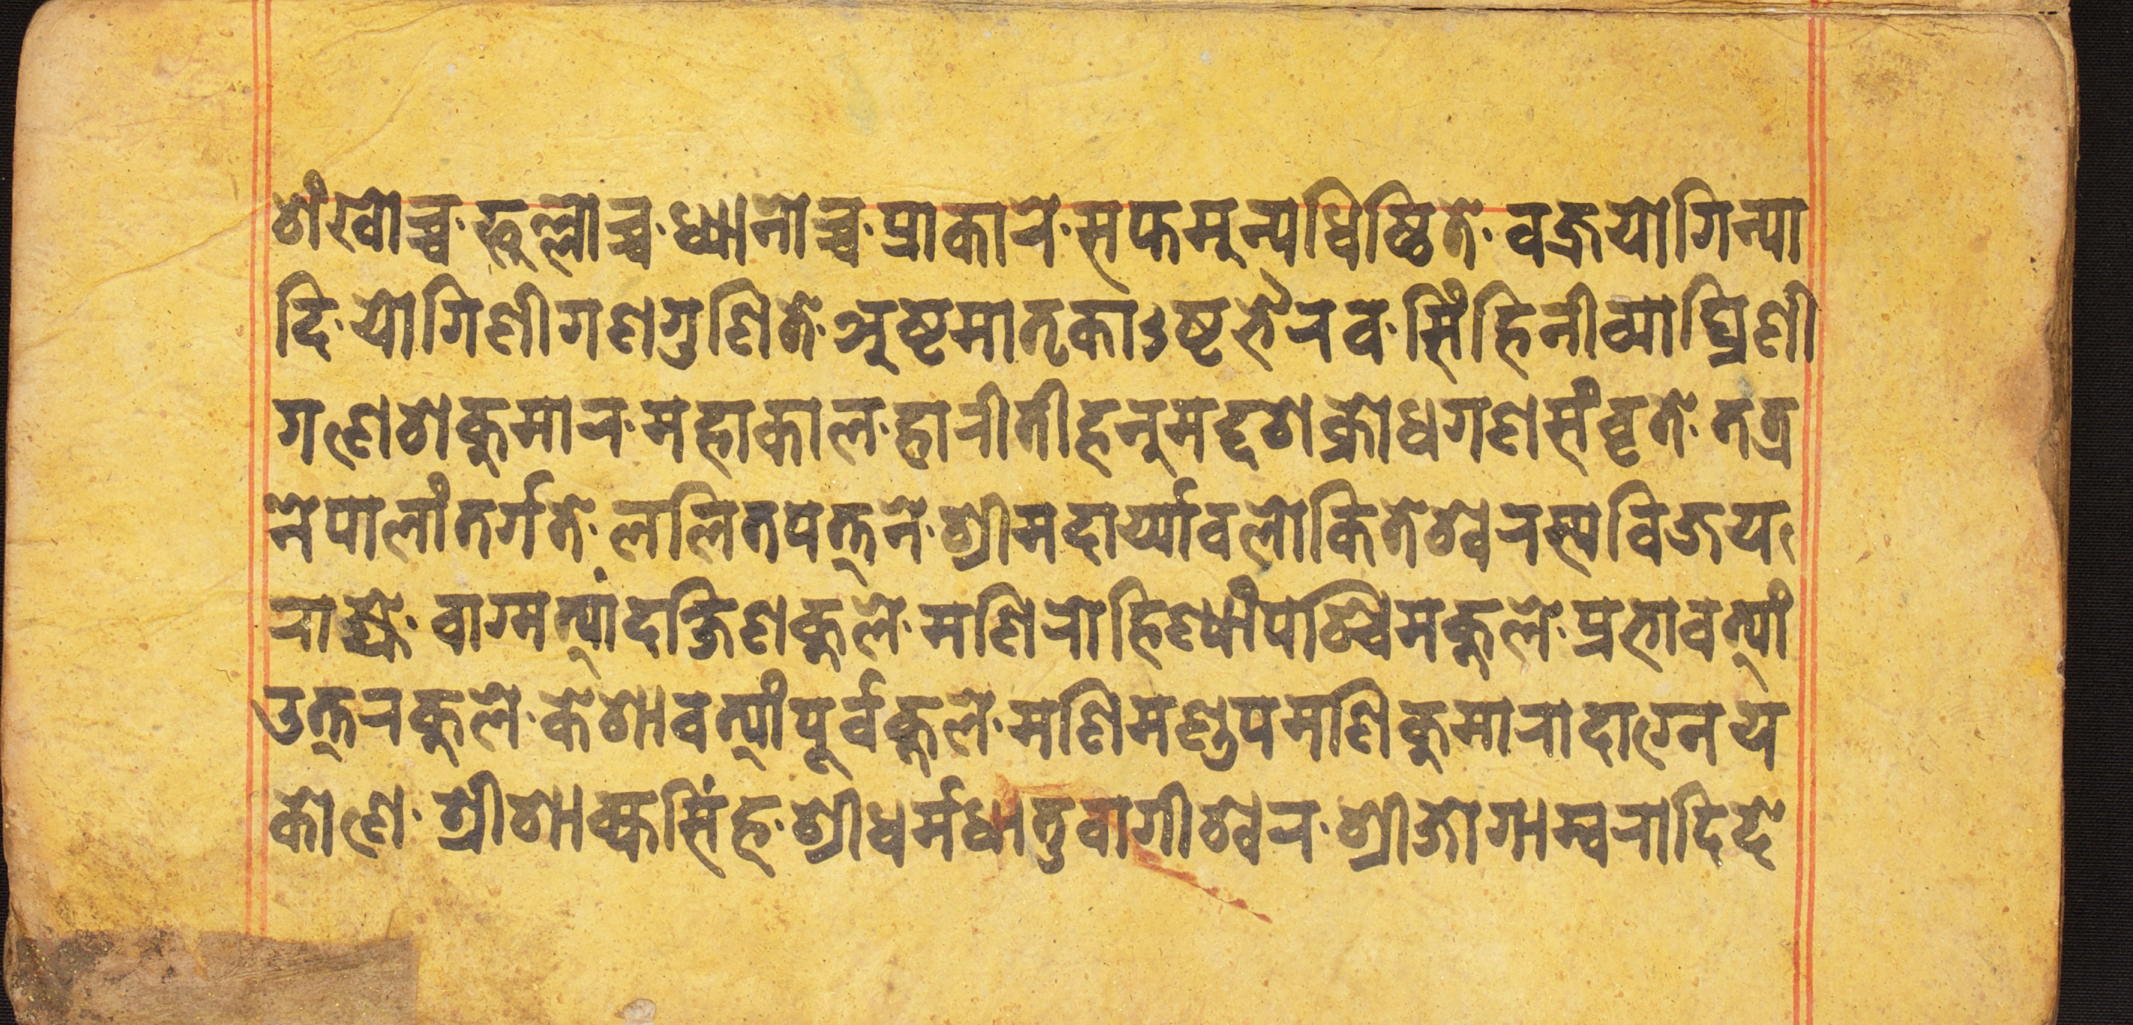 शंखोच्च·फुल्लोच्च·ध्यानोच्च·प्राकारे·सप्तमुन्यधिष्ठिते·वज्रयोगिन्या
दि·योगिणीगणगुणिते·अष्टमातृकाऽष्टभैरव·सिंहिनीव्याघ्रिणी
गणेशकुमार·महाकाल·हारीतीहनुमद्दशक्रोधगणसंवृते·तत्र
नेपालांतर्गते·ललितपत्तने·श्रीमदार्य्यावलोकितेश्वरस्यविजय
राज्ये·वाग्मत्यांदक्षिणकुले·मणिरोहिण्यांपश्चिमकुले·प्रभावत्यां
उत्तरकुले·केशावत्यांपूर्वकुले·मणिमण्डपमणिकुमारादाग्नेय
कोणे·श्रीशाक्यसिंह·श्रीधर्मधातुवागीश्वर·श्रीजोगाम्वरादिदे